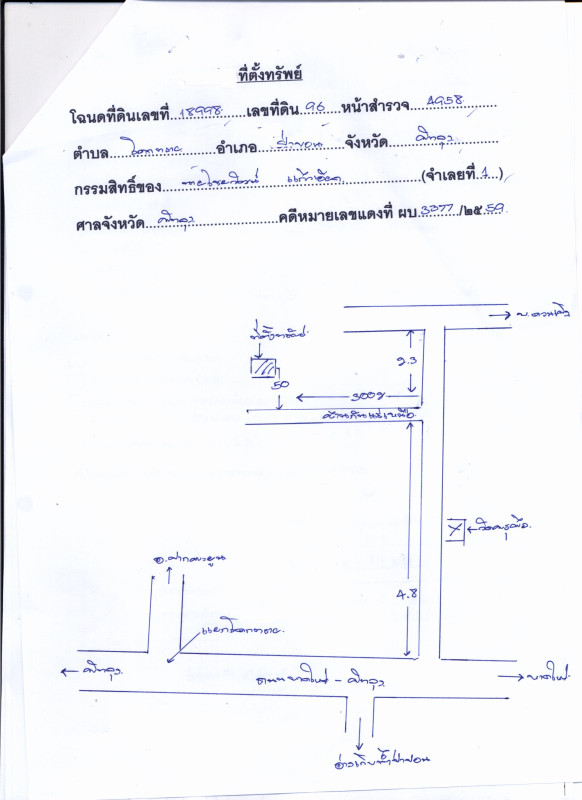 ที่ตั้งทรัพย์
โฉนดที่ดินเลขที่ 18998 เลขที่ดิน 96 หน้าสำรวจ 4958
ตำบล โคกทราย อำเภอ ป่าบอน จังหวัด พัทลุง
กรรมสิทธิ์ของ แก้วเอียด (จำเลยที่ 1)
ศาลจังหวัด พัทลุง คดีหมายเลขแดงที่ ผบ. 3377 /๒๕ 59
ที่ตั้งทรัพย์
50
300 ม
2.3
4.8
อ.ปากพะยูน
แยกโคกทราย
พัทลุง
ถนนหาดใหญ่ - พัทลุง
หาดใหญ่
อ่างเก็บน้ำป่าบอน